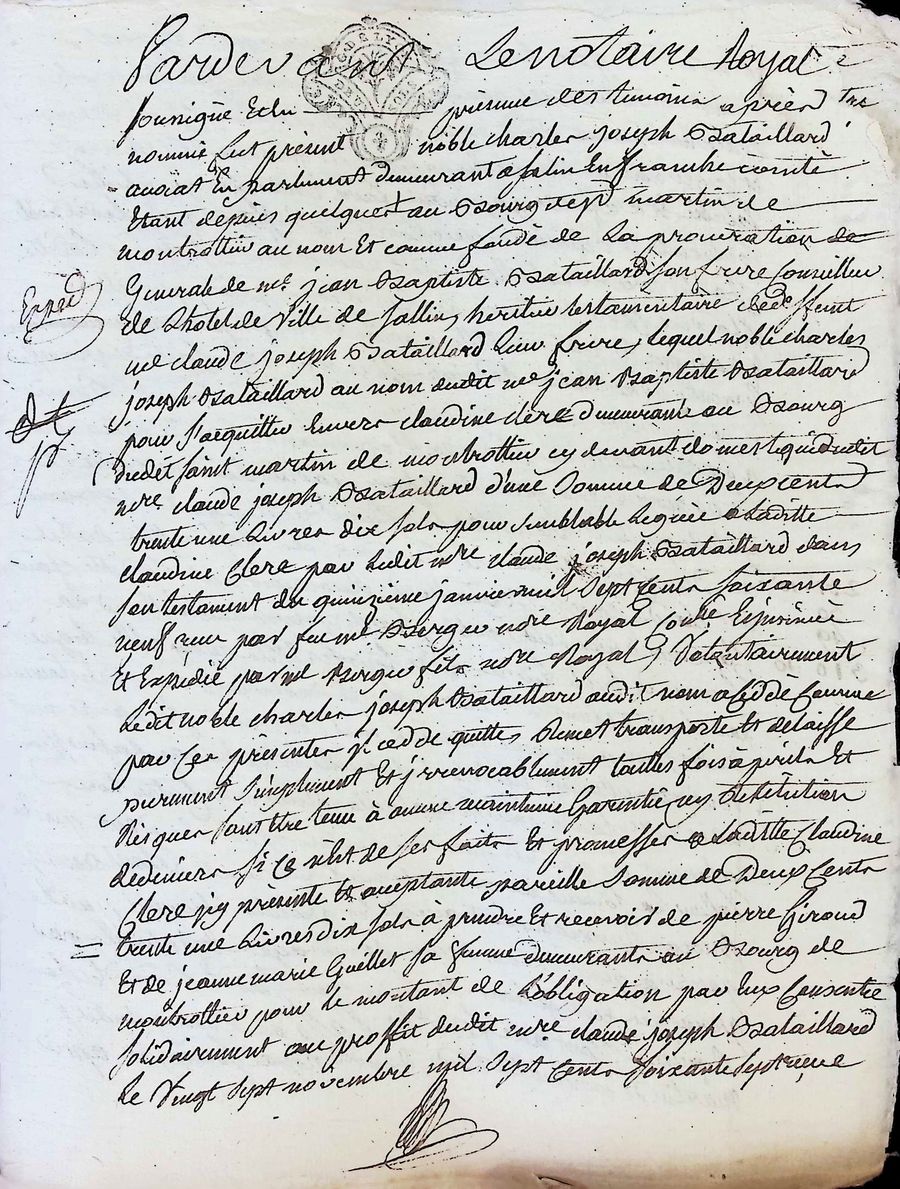 Pardevant Le notaire Royal
soussigné Et En présence des temoins apres
nommés fut présent noble charles joseph Bataillard
avocat En parlement demeurant a salin En franche comté
Etant depuis quelques au Bourg de st martin de
montrottier au nom Et comme fondé de La procuration
Generale de me jean Baptiste Bataillard son frere Conseiller
de L'hotel de Ville de Sallin, heritier testamentaire de deffunt
me claude joseph Bataillard Leur frere, lequel noble charles
joseph Bataillard au nom dudit me jean Baptiste Bataillard
pour s'acquitter Envers claudine clerc demeurante au Bourg
dudit saint martin de montrottier cy devant domestique dudit
me claude joseph Bataillard d'une Somme de Deux cents
trente une Livres dix sols pour semblable Leguée a Laditte
claudine Clerc par Ledit me claude joseph Bataillard dans
son testament du quinzieme janvier mil Sept Cents soixante
neuf reçu par feu me Berger nore Royal
Et Expédié par me Berger fils nore Royal, Volontairement
Ledit noble charles joseph Bataillard audit nom a Ceddé Comme
par Ces présentes il cedde quitte, Remet transporte Et delaisse
purement simplement Et jrrevocablement touttes fois à périls Et
Risques sans Etre tenu à aucune maintenue Garentie ny Restitution
de deniers si Ce n'est de ses faits Et promesses a Laditte Claudine
Clerc jcy présente Et acceptante pareille Somme de Deux Cents
trente une Livres dix sols à prendre Et recevoir de pierre Giroud
Et de jeanne marie Guillet sa femme demeurants au Bourg de
montrottier pour le montant de L'obligation par Eux Consentie
solidairement au proffit dudit me claude joseph Bataillard
Le Vingt sept novembre mil Sept Cents soixante Sept reçue
Expéd